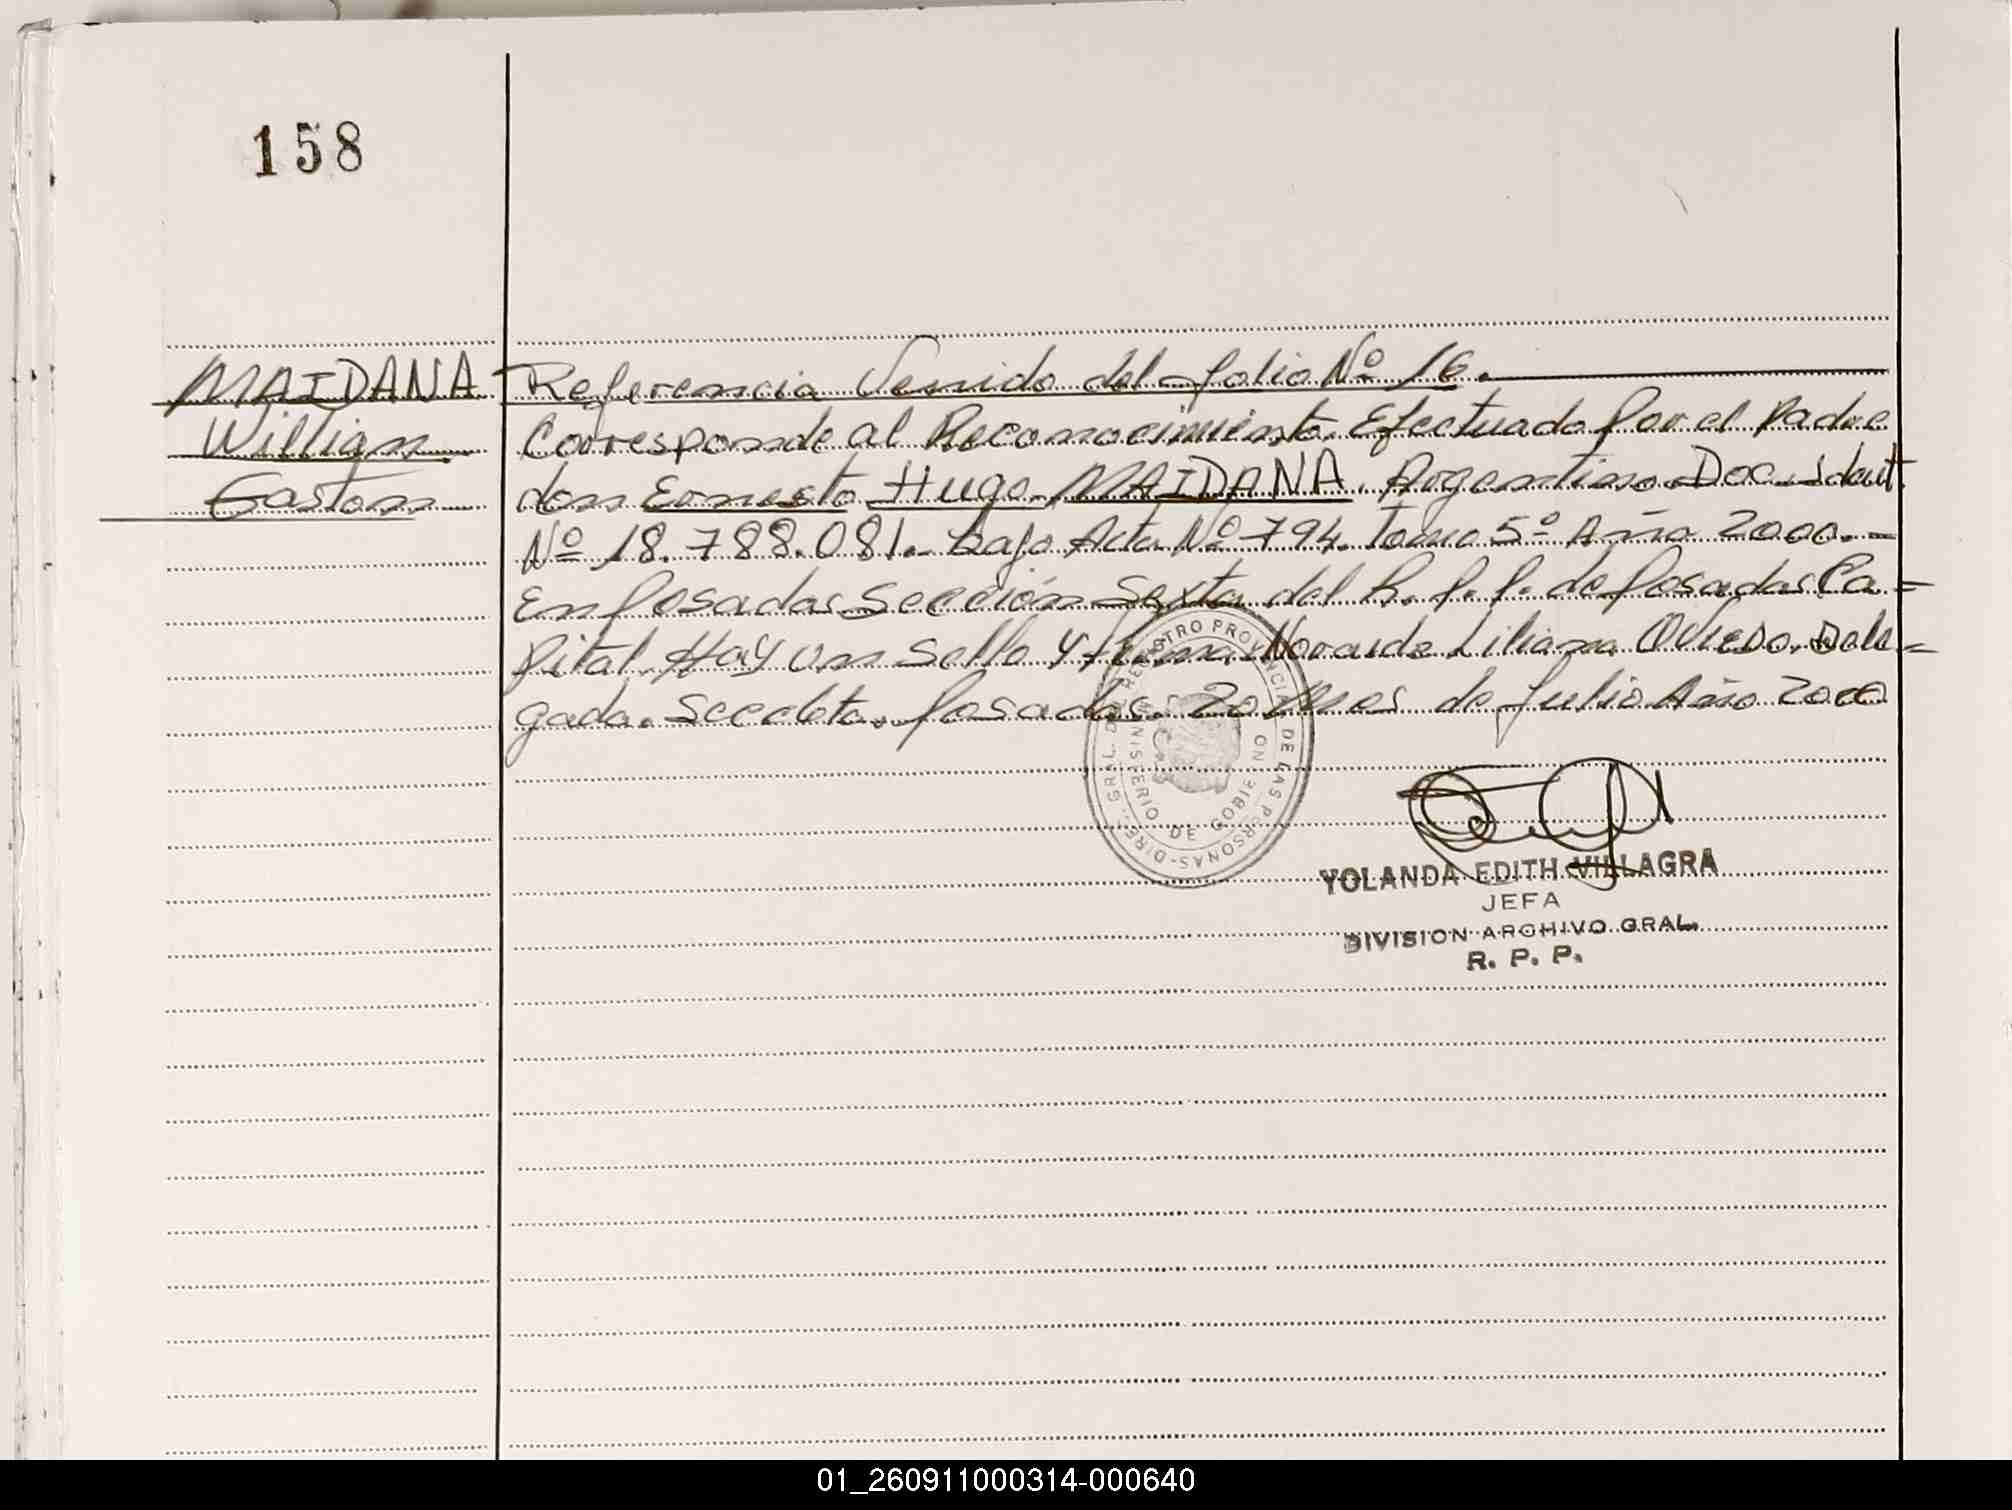 158
MAIDANA
Willian
Gaston
Referencia Venido del folio Nº 16.
Corresponde al Reconocimiento. Efectuado por el Padre
don Ernesto Hugo MAIDANA. Argentino. Doc. Ident.
Nº 18.788.081.- bajo Acta Nº 794. Tomo 5º Año 2000.-
En Posadas Sección Sexta del R. P. P. de Posadas Ca=
pital. Hay un Sello y firma Liliana Oviedo. Dele=
gada. Posadas. 20 Mes de Julio Año 2000
REGISTRO PROVINCIAL DE LAS PERSONAS-DIREC. GRAL. DE
MINISTERIO DE GOBIERNO
YOLANDA EDITH VILLAGRA
JEFA
DIVISION ARCHIVO GRAL.
R. P. P.
01_260911000314-000640